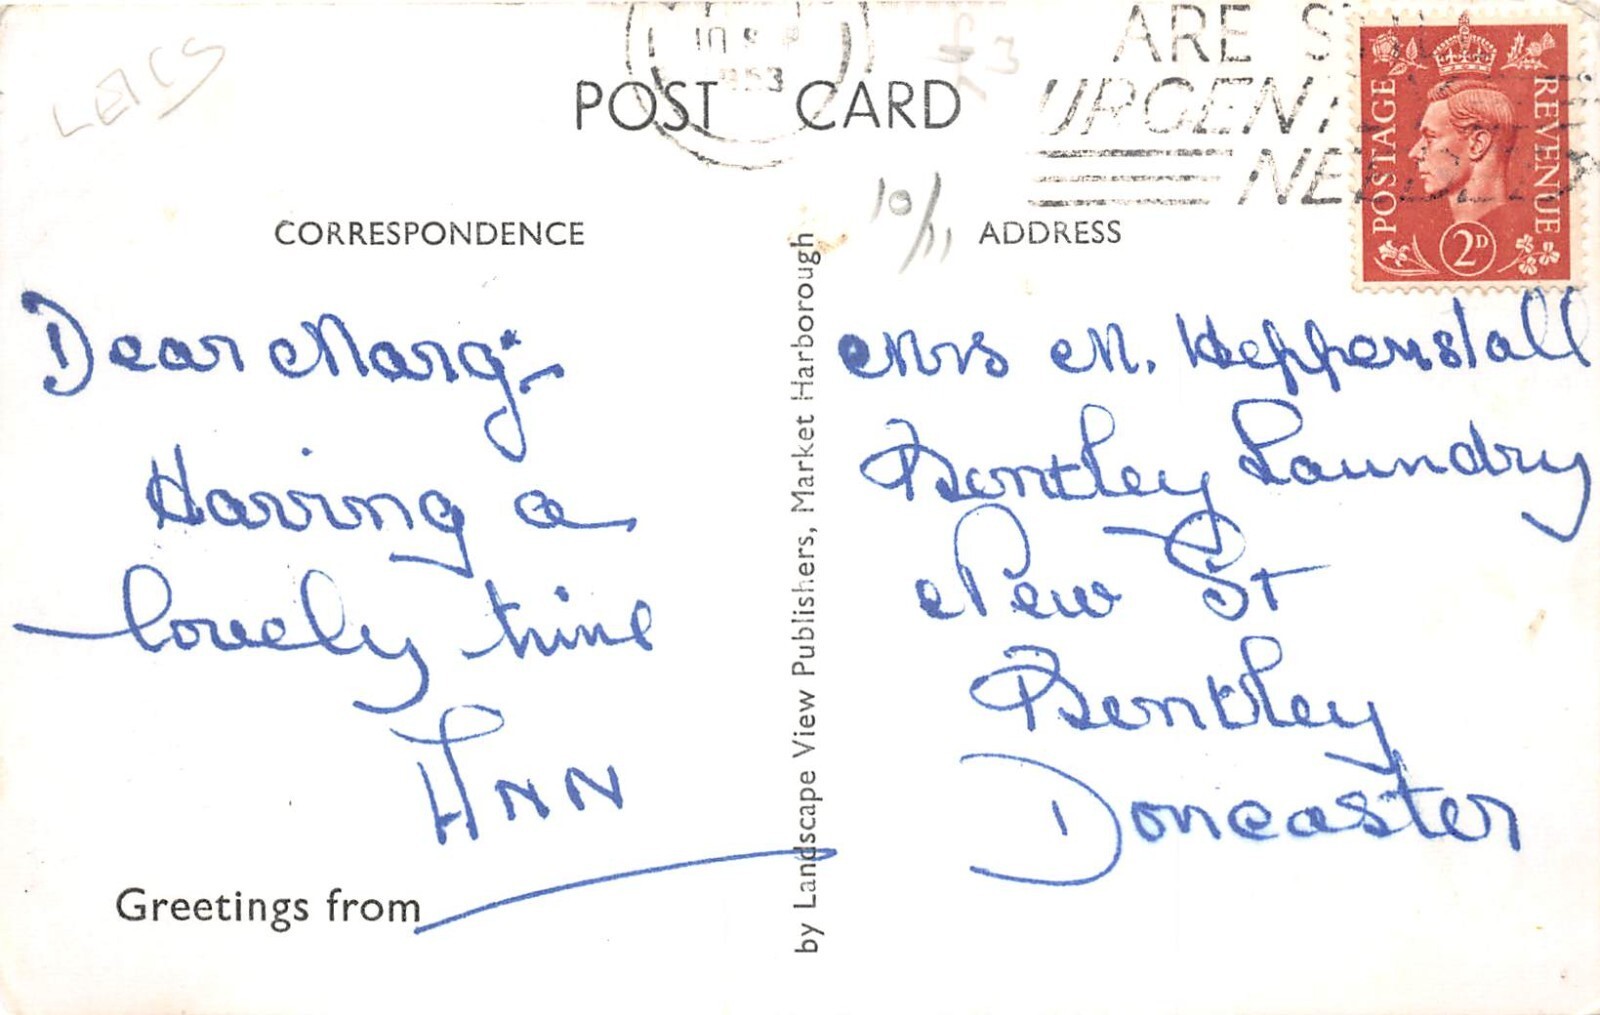 LEICS
1953
£3
ARE
URGENTLY
NEEDED
POST CARD
POSTAGE
REVENUE
2D
10/11
CORRESPONDENCE
ADDRESS
Dear Marg:-
Having a
lovely time
Ann
Greetings from
by Landscape View Publishers, Market Harborough
Mrs M. Heppenstall
Bentley Laundry
New St
Bentley
Doncaster